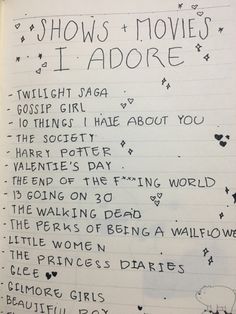 SHOWS + MOVIES
I ADORE
- TWILIGHT SAGA
- GOSSIP GIRL
- 10 THINGS I HATE ABOUT YOU
- THE SOCIETY
- HARRY POTTER
- VALENTIE'S DAY
- THE END OF THE F***ING WORLD
- 13 GOING ON 30
- THE WALKING DEAD
- THE PERKS OF BEING A WALLFLOWE
- LITTLE WOMEN
- THE PRINCESS DIARIES
- GLEE
- GILMORE GIRLS
- BEAUTIFUL BOY